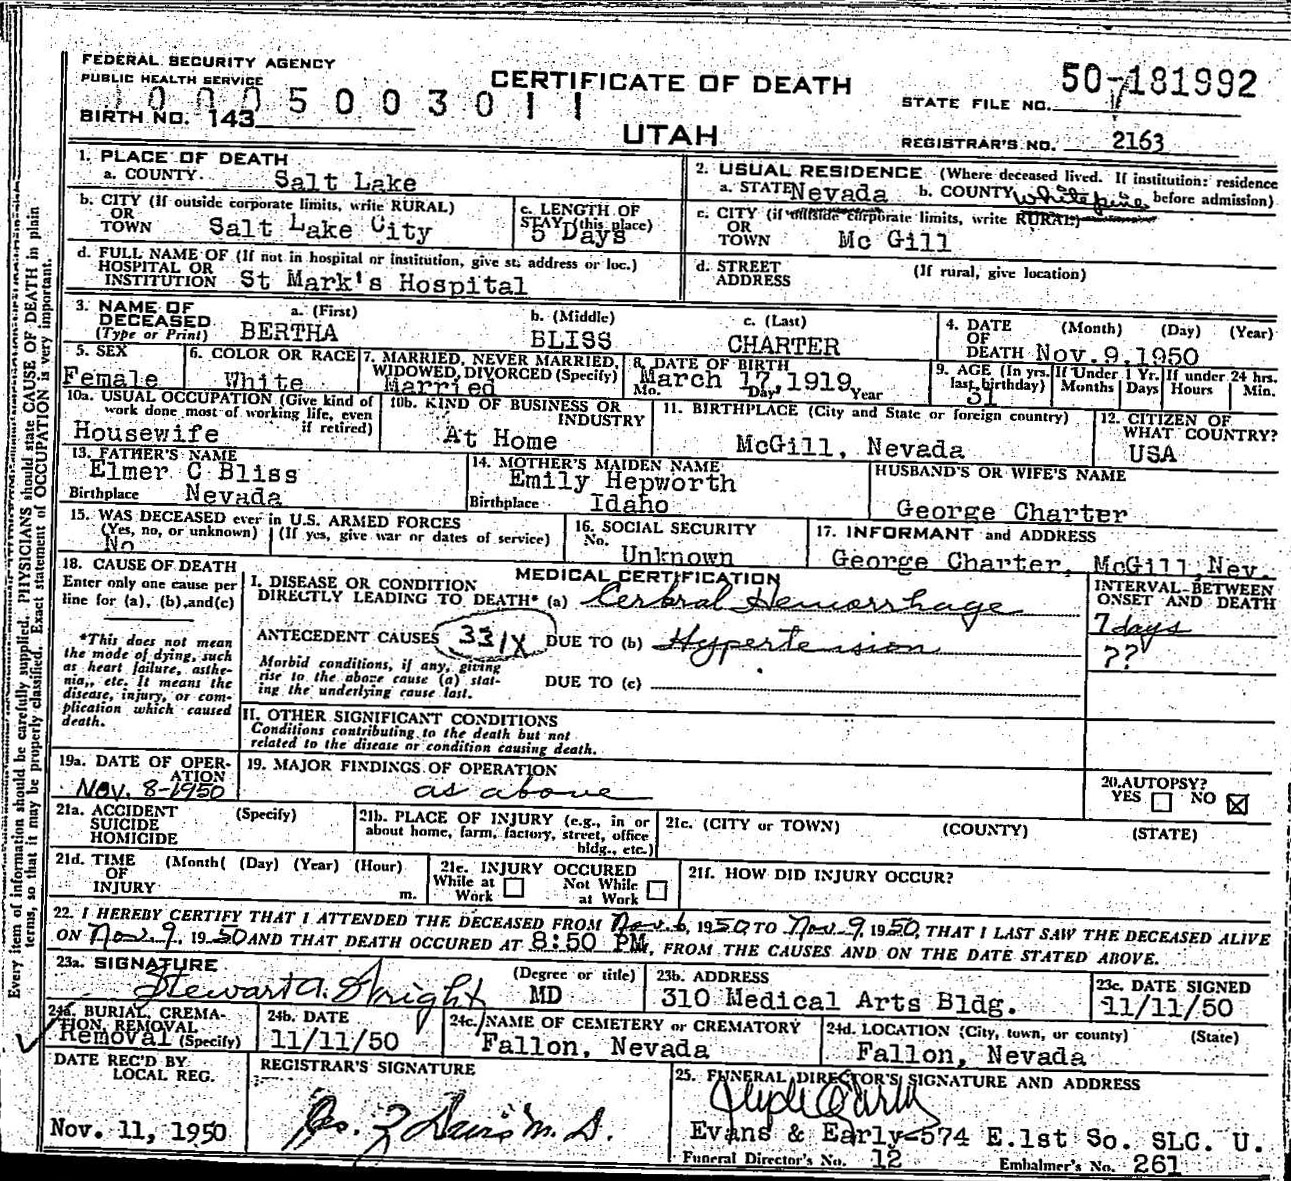 FEDERAL SECURITY AGENCY
PUBLIC HEALTH SERVICE
CERTIFICATE OF DEATH
UTAH
STATE FILE NO. 50-181992
BIRTH NO. 143
REGISTRAR'S NO. 2163
1. PLACE OF DEATH
a. COUNTY Salt Lake
2. USUAL RESIDENCE (Where deceased lived. If institution: residence
a. STATE Nevada b. COUNTY White pine before admission)
b. CITY (If outside corporate limits, write RURAL)
OR
TOWN Salt Lake City
c. LENGTH OF
STAY (this place)
5 Days
c. CITY (if outside corporate limits, write RURAL)
OR
TOWN Mc Gill
d. FULL NAME OF (If not in hospital or institution, give st. address or loc.)
HOSPITAL OR
INSTITUTION St Mark's Hospital
d. STREET (If rural, give location)
ADDRESS
3. NAME OF DECEASED
(Type or Print)
a. (First) BERTHA
b. (Middle) BLISS
c. (Last) CHARTER
4. DATE (Month) (Day) (Year)
OF
DEATH Nov. 9, 1950
5. SEX
Female
6. COLOR OR RACE
White
7. MARRIED, NEVER MARRIED,
WIDOWED, DIVORCED (Specify)
Married
8. DATE OF BIRTH
March 17, 1919
Mo. Day Year
9. AGE (In yrs. last birthday) 31
If Under 1 Yr. Months Days
If under 24 hrs. Hours Min.
10a. USUAL OCCUPATION (Give kind of
work done most of working life, even
if retired)
Housewife
10b. KIND OF BUSINESS OR
INDUSTRY
At Home
11. BIRTHPLACE (City and State or foreign country)
McGill, Nevada
12. CITIZEN OF
WHAT COUNTRY?
USA
13. FATHER'S NAME
Elmer C Bliss
Birthplace Nevada
14. MOTHER'S MAIDEN NAME
Emily Hepworth
Birthplace Idaho
HUSBAND'S OR WIFE'S NAME
George Charter
15. WAS DECEASED ever in U.S. ARMED FORCES
(Yes, no, or unknown) (If yes, give war or dates of service)
No
16. SOCIAL SECURITY
No. Unknown
17. INFORMANT and ADDRESS
George Charter, McGill, Nev.
18. CAUSE OF DEATH
Enter only one cause per
line for (a), (b), and (c)
*This does not mean
the mode of dying, such
as heart failure, asthe-
nia, etc. It means the
disease, injury, or com-
plication which caused
death.
MEDICAL CERTIFICATION
I. DISEASE OR CONDITION
DIRECTLY LEADING TO DEATH* (a) Cerbral Hemorrhage
INTERVAL BETWEEN
ONSET AND DEATH
7 days
ANTECEDENT CAUSES 331X DUE TO (b) Hypertension
??
Morbid conditions, if any, giving
rise to the above cause (a) stat-
ing the underlying cause last.
DUE TO (c)
II. OTHER SIGNIFICANT CONDITIONS
Conditions contributing to the death but not
related to the disease or condition causing death.
19a. DATE OF OPER-
ATION
Nov. 8-1950
19. MAJOR FINDINGS OF OPERATION
as above
20. AUTOPSY?
YES NO
21a. ACCIDENT (Specify)
SUICIDE
HOMICIDE
21b. PLACE OF INJURY (e.g., in or
about home, farm, factory, street, office
bldg., etc.)
21c. (CITY or TOWN) (COUNTY) (STATE)
21d. TIME (Month( (Day) (Year) (Hour)
OF
INJURY m.
21e. INJURY OCCURED
While at Work Not While at Work
21f. HOW DID INJURY OCCUR?
22. I HEREBY CERTIFY THAT I ATTENDED THE DECEASED FROM Nov. 6, 1950 TO Nov. 9, 1950, THAT I LAST SAW THE DECEASED ALIVE
ON Nov. 9, 1950 AND THAT DEATH OCCURED AT 8:50 PM, FROM THE CAUSES AND ON THE DATE STATED ABOVE.
23a. SIGNATURE (Degree or title)
Stewart A. Wright MD
23b. ADDRESS
310 Medical Arts Bldg.
23c. DATE SIGNED
11/11/50
24a. BURIAL, CREMA-
TION, REMOVAL
Removal (Specify)
24b. DATE
11/11/50
24c. NAME OF CEMETERY or CREMATORY
Fallon, Nevada
24d. LOCATION (City, town, or county) (State)
Fallon, Nevada
DATE REC'D BY
LOCAL REG.
Nov. 11, 1950
REGISTRAR'S SIGNATURE
25. FUNERAL DIRECTOR'S SIGNATURE AND ADDRESS
Evans & Early-574 E.1st So. SLC. U.
Funeral Director's No. 12 Embalmer's No. 261
Every item of information should be carefully supplied. PHYSICIANS should state CAUSE OF DEATH in plain
terms, so that it may be properly classified. Exact statement of OCCUPATION is very important.